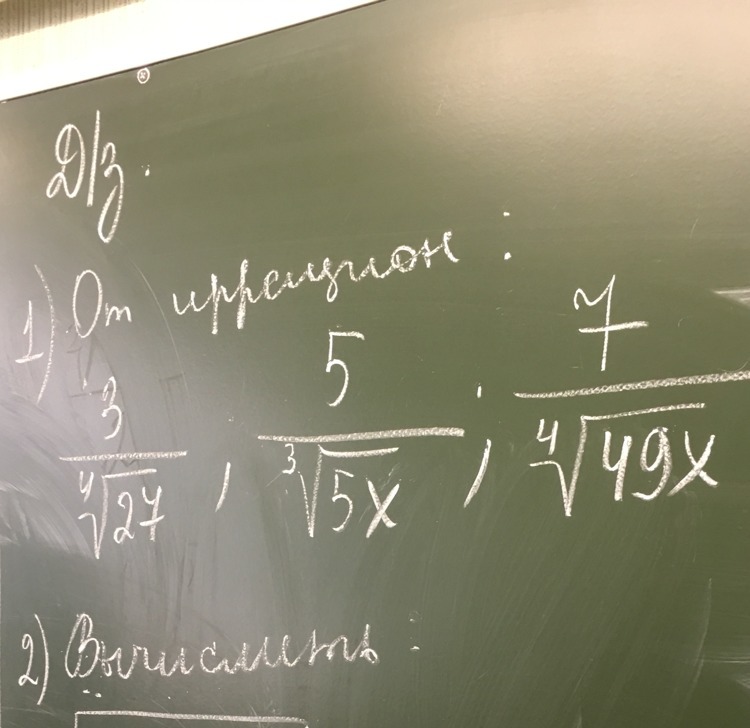 Д/з.
1) От иррацион:
3/∜27, 5/∛5x; 7/∜49x
2) Вычислить: